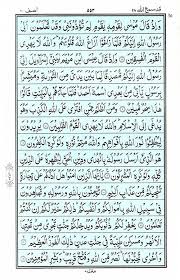 قد سمع الله ٢٨ ٥٥٣ الصف
وَاِذْ قَالَ مُوْسٰى لِقَوْمِهٖ يٰقَوْمِ لِمَ تُؤْذُوْنَنِيْ وَقَدْ تَّعْلَمُوْنَ اَنِّيْ
رَسُوْلُ اللّٰهِ اِلَيْكُمْ فَلَمَّا زَاغُوْۤا اَزَاغَ اللّٰهُ قُلُوْبَهُمْ وَاللّٰهُ لَا يَهْدِي
الْقَوْمَ الْفٰسِقِيْنَ وَاِذْ قَالَ عِيْسَى ابْنُ مَرْيَمَ يٰبَنِيْۤ اِسْرَآءِيْلَ اِنِّيْ
رَسُوْلُ اللّٰهِ اِلَيْكُمْ مُّصَدِّقًا لِّمَا بَيْنَ يَدَيَّ مِنَ التَّوْرٰىةِ وَمُبَشِّرًۢا
بِرَسُوْلٍ يَّاْتِيْ مِنْۢ بَعْدِي اسْمُهٗۤ اَحْمَدُ فَلَمَّا جَآءَهُمْ بِالْبَيِّنٰتِ قَالُوْا
هٰذَا سِحْرٌ مُّبِيْنٌ وَمَنْ اَظْلَمُ مِمَّنِ افْتَرٰى عَلَى اللّٰهِ الْكَذِبَ وَهُوَ
يُدْعٰۤى اِلَى الْاِسْلَامِ وَاللّٰهُ لَا يَهْدِي الْقَوْمَ الظّٰلِمِيْنَ يُرِيْدُوْنَ
لِيُطْفِـُٔوْا نُوْرَ اللّٰهِ بِاَفْوَاهِهِمْ وَاللّٰهُ مُتِمُّ نُوْرِهٖ وَلَوْ كَرِهَ الْكٰفِرُوْنَ
هُوَ الَّذِيْۤ اَرْسَلَ رَسُوْلَهٗ بِالْهُدٰى وَدِيْنِ الْحَقِّ لِيُظْهِرَهٗ عَلَى الدِّيْنِ
كُلِّهٖ وَلَوْ كَرِهَ الْمُشْرِكُوْنَ يٰۤاَيُّهَا الَّذِيْنَ اٰمَنُوْا هَلْ اَدُلُّكُمْ عَلٰى
تِجَارَةٍ تُنْجِيْكُمْ مِّنْ عَذَابٍ اَلِيْمٍ تُؤْمِنُوْنَ بِاللّٰهِ وَرَسُوْلِهٖ وَتُجَاهِدُوْنَ
فِيْ سَبِيْلِ اللّٰهِ بِاَمْوَالِكُمْ وَاَنْفُسِكُمْ ذٰلِكُمْ خَيْرٌ لَّكُمْ اِنْ كُنْتُمْ
تَعْلَمُوْنَ يَغْفِرْ لَكُمْ ذُنُوْبَكُمْ وَيُدْخِلْكُمْ جَنّٰتٍ تَجْرِيْ مِنْ تَحْتِهَا
الْاَنْهٰرُ وَمَسٰكِنَ طَيِّبَةً فِيْ جَنّٰتِ عَدْنٍ ذٰلِكَ الْفَوْزُ الْعَظِيْمُ
وَاُخْرٰى تُحِبُّوْنَهَا نَصْرٌ مِّنَ اللّٰهِ وَفَتْحٌ قَرِيْبٌ وَبَشِّرِ الْمُؤْمِنِيْنَ